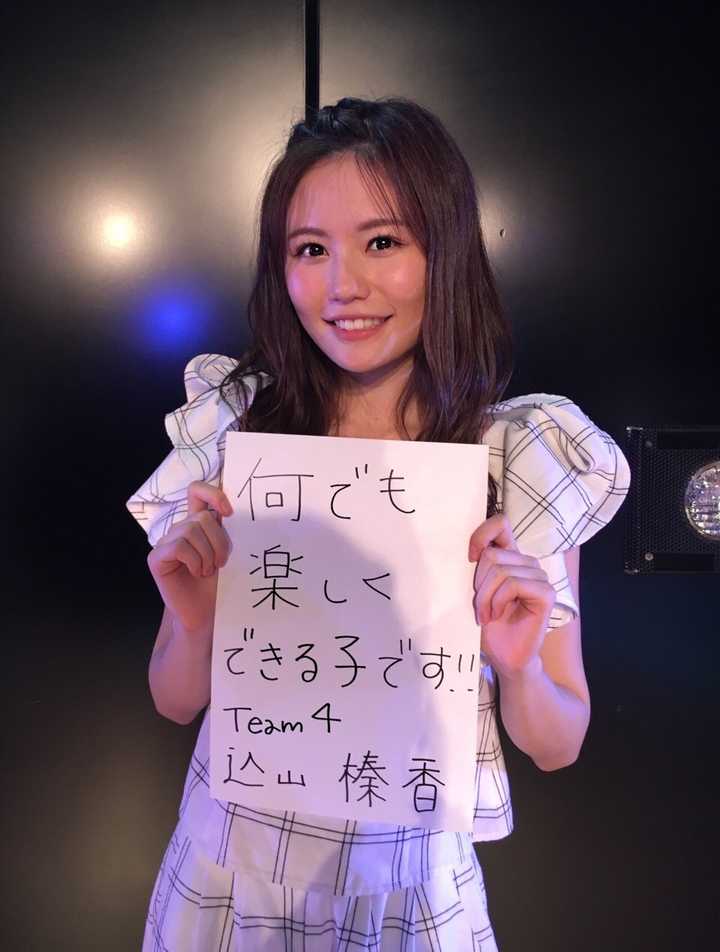 何でも
楽しく
できる子です!!
Team 4
込山 榛香